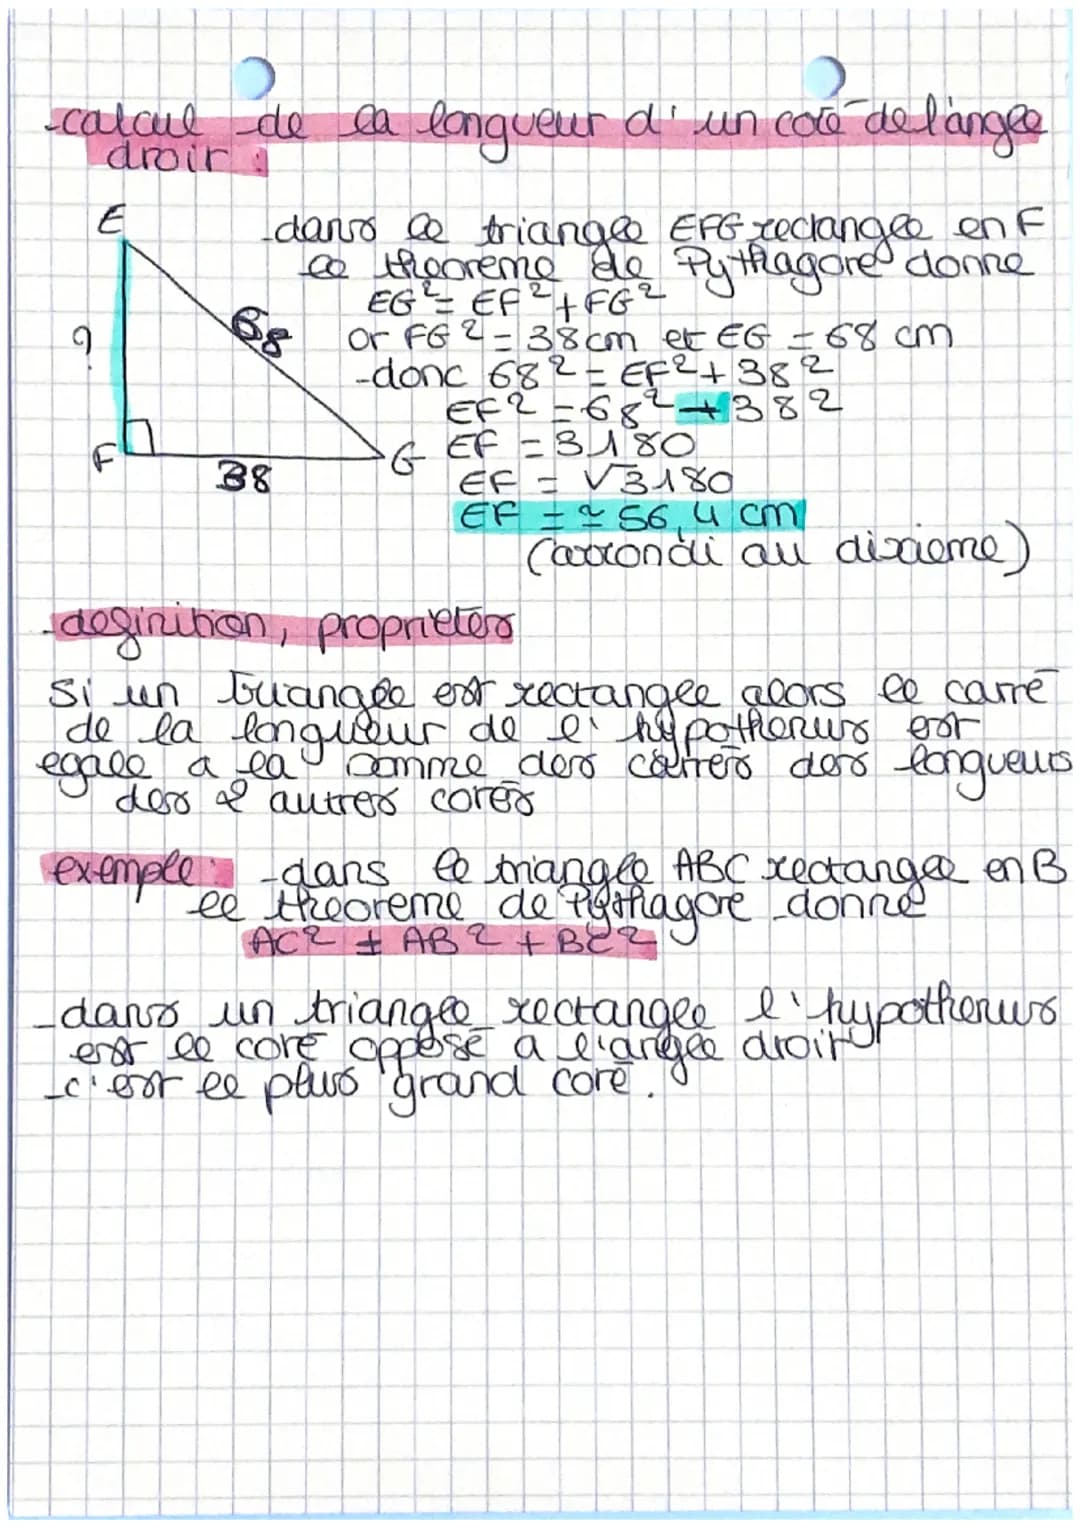 -calcul de la longueur d'un coté de l'angle
droit :
E
-dans le triangle EFG rectangle en F
le theoreme de Pythagore donne
EG² = EF² + FG²
?
68
or FG² = 38cm et EG = 68 cm
-donc 68² = EF² + 38²
EF² = 68² + 38²
F
38
G
EF = 3180
EF = √3180
EF = ≃ 56,4 cm
(arrondi au dixieme)
-definition, proprietés
Si un triangle est rectangle alors le carré
de la longueur de l'hypothenus est
egale a la somme des carrés des longueurs
des 2 autres cotés
exemple : -dans le triangle ABC rectangle en B
le theoreme de Pythagore donne
AC² = AB² + BC²
-dans un triangle rectangle l'hypothenus
est le coté opposé a l'angle droit
-c'est le plus grand coté.